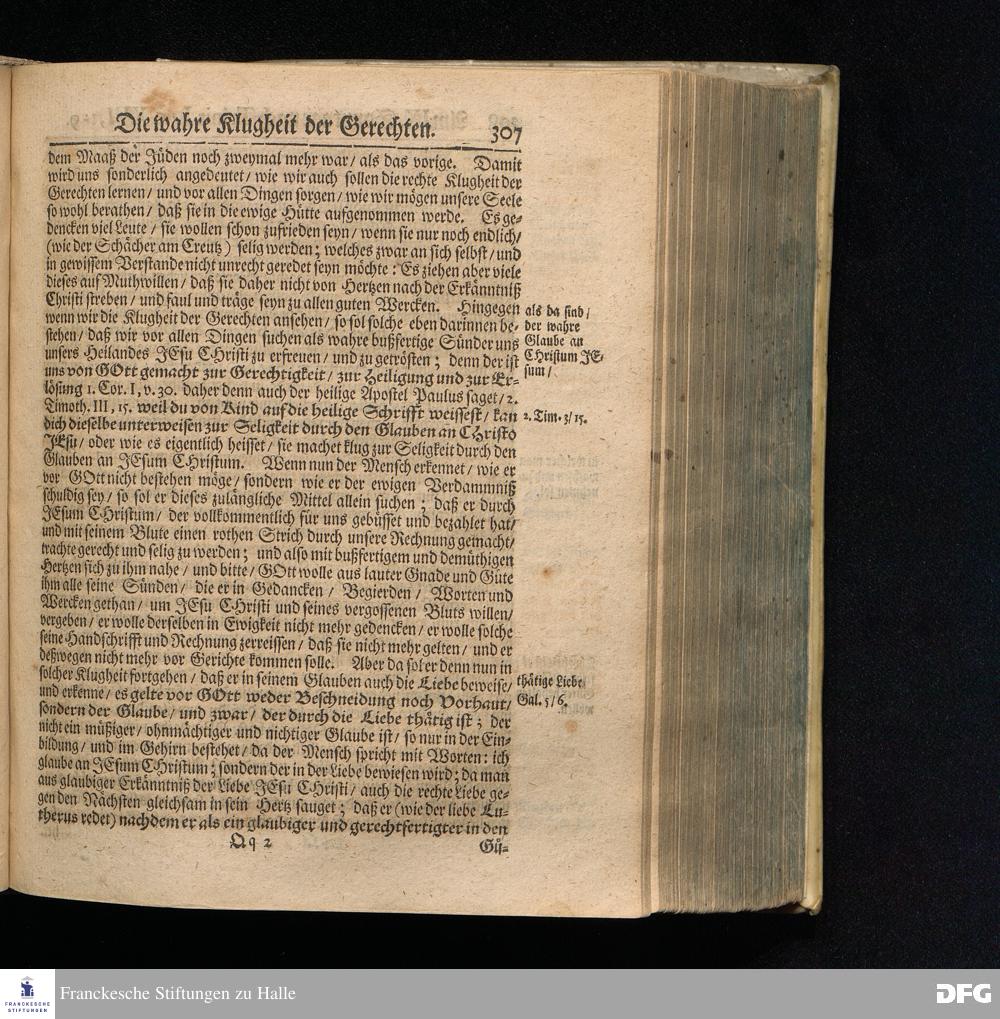 Die wahre Klugheit der Gerechten. 307
dem Maaß der Jüden noch zweymal mehr war/ als das vorige. Damit
wird uns sonderlich angedeutet/ wie wir auch sollen die rechte Klugheit der
Gerechten lernen/ und vor allen Dingen sorgen/ wie wir mögen unsere Seele
so wohl berathen/ daß sie in die ewige Hütte aufgenommen werde. Es ge-
dencken viel Leute/ sie wollen schon zufrieden seyn/ wenn sie nur noch endlich/
(wie der Schächer am Creutz) selig werden; welches zwar an sich selbst/ und
in gewissem Verstande nicht unrecht geredet seyn möchte: Es ziehen aber viele
dieses auf Muthwillen/ daß sie daher nicht von Hertzen nach der Erkänntniß
Christi streben/ und faul und träge seyn zu allen guten Wercken. Hingegen
wenn wir die Klugheit der Gerechten ansehen/ so sol solche eben darinnen be-
stehen/ daß wir vor allen Dingen suchen als wahre bußfertige Sünder uns
unsers Heilandes JEsu CHristi zu erfreuen/ und zu getrösten; denn der ist
uns von GOtt gemacht zur Gerechtigkeit/ zur Heiligung und zur Er-
lösung 1. Cor. I, v. 30. daher denn auch der heilige Apostel Paulus saget/ 2.
Timoth. III, 15. weil du von Kind auf die heilige Schrifft weissest/ kan
dich dieselbe unterweisen zur Seligkeit durch den Glauben an CHristo
JEsu/ oder wie es eigentlich heisset/ sie machet klug zur Seligkeit durch den
Glauben an JEsum CHristum. Wenn nun der Mensch erkennet/ wie er
vor GOtt nicht bestehen möge/ sondern wie er der ewigen Verdammniß
schuldig sey/ so sol er dieses zulängliche Mittel allein suchen; daß er durch
JEsum CHristum/ der vollkommentlich für uns gebüsset und bezahlet hat/
und mit seinem Blute einen rothen Strich durch unsere Rechnung gemacht/
trachte gerecht und selig zu werden; und also mit bußfertigem und demüthigen
Hertzen sich zu ihm nahe/ und bitte/ GOtt wolle aus lauter Gnade und Güte
ihm alle seine Sünden/ die er in Gedancken/ Begierden/ Worten und
Wercken gethan/ um JEsu CHristi und seines vergossenen Bluts willen/
vergeben/ er wolle derselben in Ewigkeit nicht mehr gedencken/ er wolle solche
seine Handschrifft und Rechnung zerreissen/ daß sie nicht mehr gelten/ und er
deßwegen nicht mehr vor Gerichte kommen solle. Aber da sol er denn nun in
solcher Klugheit fortgehen/ daß er in seinem Glauben auch die Liebe beweise/
und erkenne/ es gelte vor GOtt weder Beschneidung noch Vorhaut/
sondern der Glaube/ und zwar/ der durch die Liebe thätig ist; der
nicht ein müßiger/ ohnmächtiger und nichtiger Glaube ist/ so nur in der Ein-
bildung/ und im Gehirn bestehet/ da der Mensch spricht mit Worten: ich
glaube an JEsum CHristum; sondern der in der Liebe bewiesen wird; da man
aus glaubiger Erkänntniß der Liebe JEsu CHristi/ auch die rechte Liebe ge-
gen den Nächsten gleichsam in sein Hertz sauget; daß er (wie der liebe Lu-
therus redet) nachdem er als ein glaubiger und gerechtfertigter in den
Qq 2 Gü-
als da sind/
der wahre
Glaube an
CHristum JE-
sum/
2. Tim. 3/ 15.
thätige Liebe
Gal. 5/ 6.
FRANCKESCHE
STIFTUNGEN
Franckesche Stiftungen zu Halle
DFG